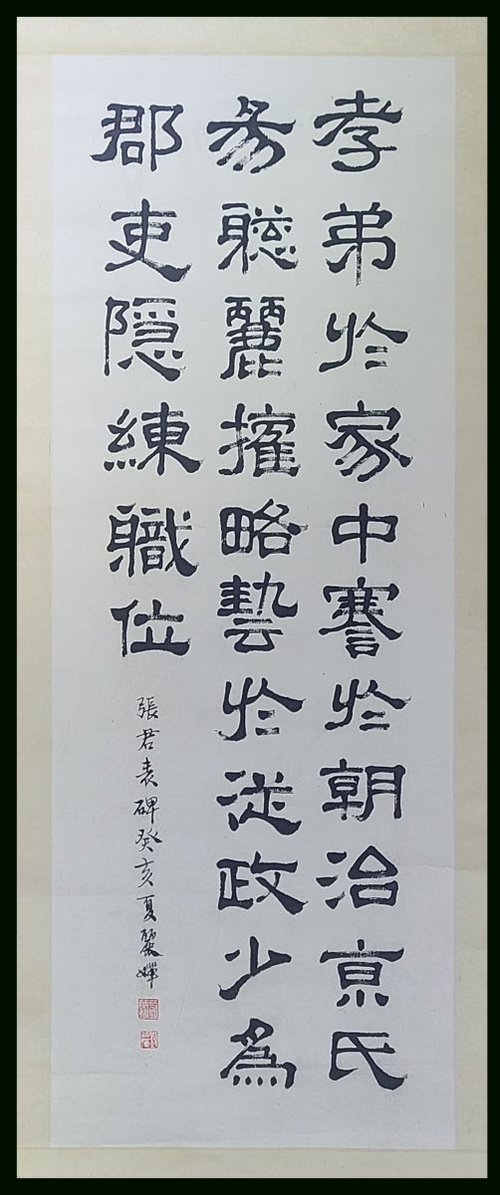 孝弟於家中謇於朝治京氏
易聦麗權略藝於從政少為
郡吏隱練職位
張君表碑癸亥夏嬋